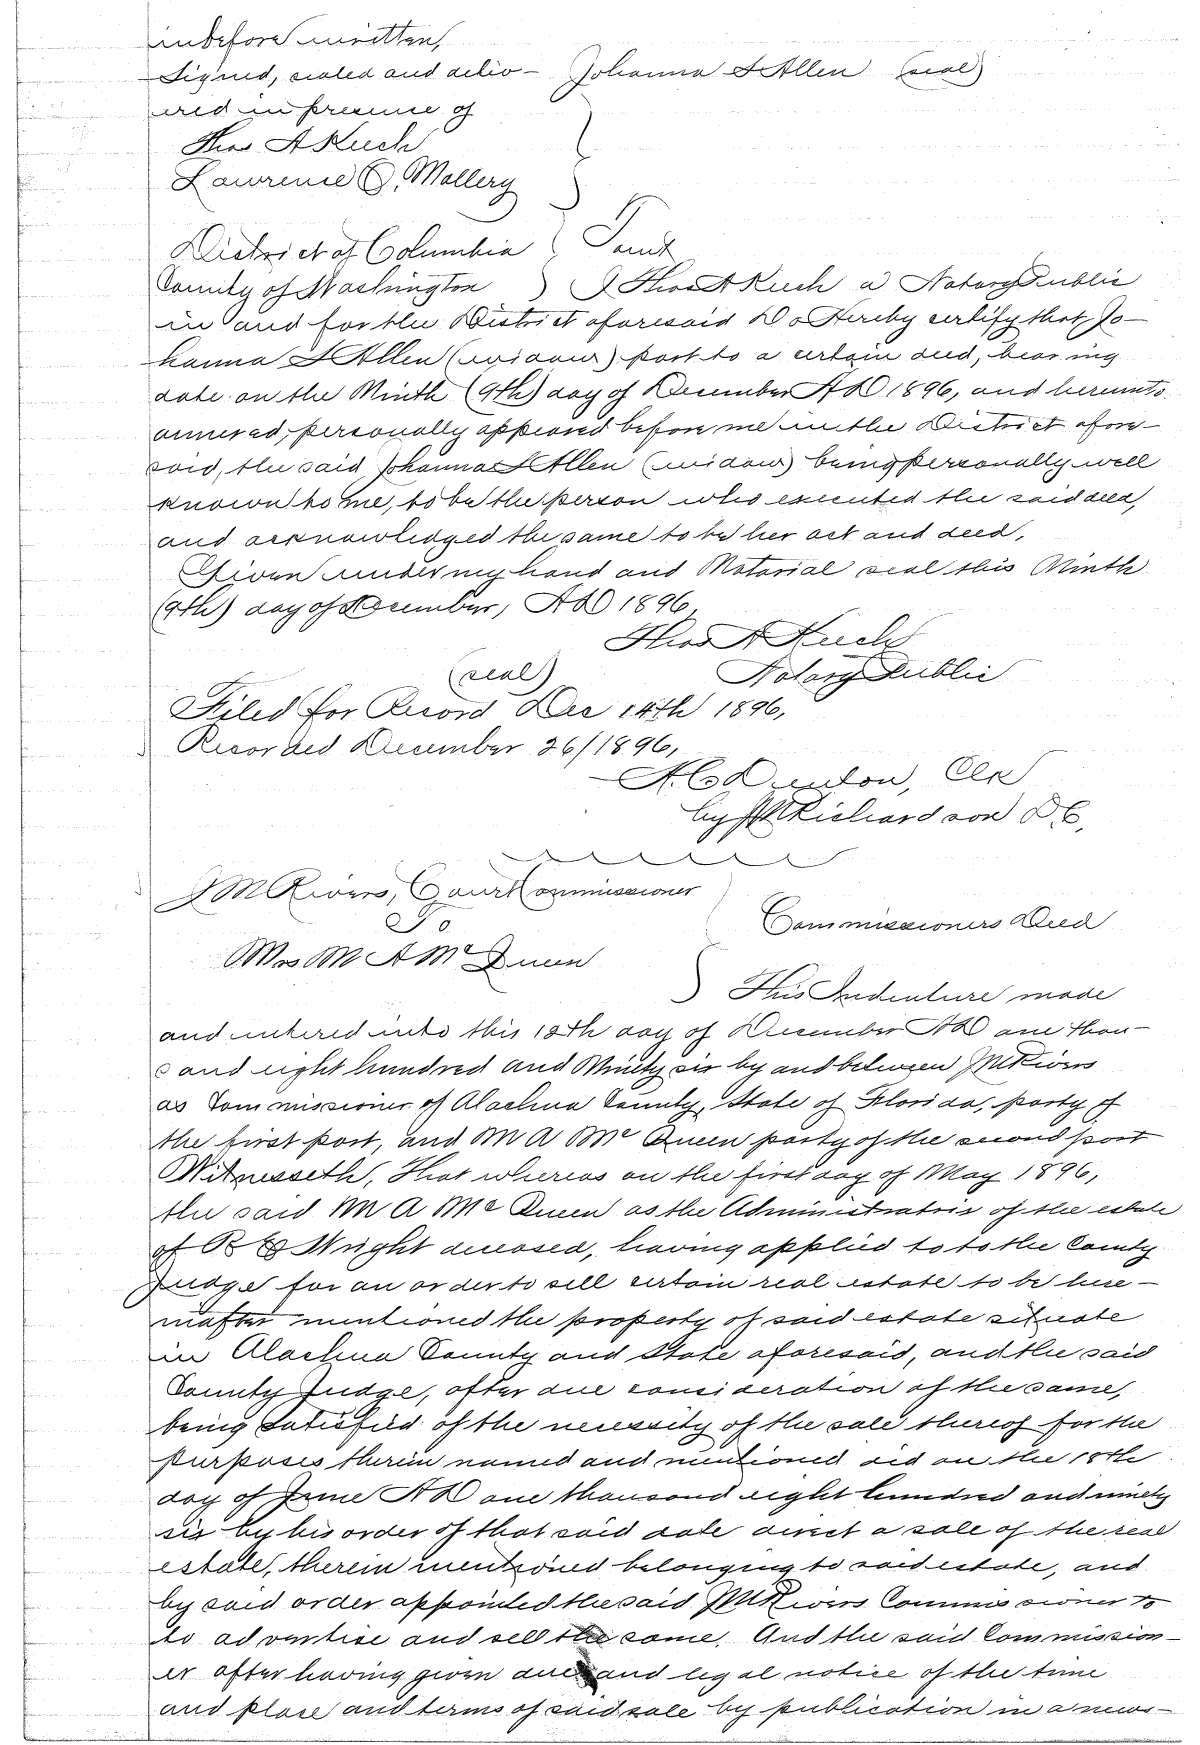 inbefore written,
Signed, sealed and deliv- Johanna S Allen (seal)
ered in presence of
Thos A Kuch
Lawrence O, Mallery
District of Columbia
County of Washington I Thos A Kuch a Notary Public
in and for the District aforesaid Do Hereby certify that Jo-
hanna S Allen (widow) part to a certain deed, bearing
date on the Ninth (9th) day of December AD 1896, and hereunto
annexed, personally appeared before me in the District afore-
said, the said Johanna S Allen (widow) being personally well
known to me, to be the person who executed the said deed,
and acknowledged the same to be her act and deed,
Given under my hand and Notarial seal this Ninth
(9th) day of December, AD 1896,
Thos A Kuch
(seal) Notary Public
Filed for Record Dec 14th 1896,
Recorded December 26/1896,
Denton, Clk
by Richardson D.C.
J M Rivers, Court Commissioner
To Commissioners Deed
Mrs M A McQueen
This Indenture made
and entered into this 18th day of December AD one thou-
sand eight hundred and Ninety six by and between J M Rivers
as Commissioner of Alachua County, State of Florida, party of
the first part, and M A McQueen party of the second part
Witnesseth, That whereas on the first day of May 1896,
the said M A McQueen as the Administratrix of the estate
of R Wright deceased, having applied to to the County
Judge for an order to sell certain real estate to be here-
inafter mentioned the property of said estate situate
in Alachua County and State aforesaid, and the said
County Judge, after due consideration of the same,
being satisfied of the necessity of the sale thereof for the
purposes therein named and mentioned did on the 18th
day of June AD one thousand eight hundred and ninety
six by his order of that said date direct a sale of the real
estate, therein mentioned belonging to said estate, and
by said order appointed the said J M Rivers Commissioner to
to advertise and sell the same. And the said Commission-
er after having given due and legal notice of the time
and place and terms of said sale by publication in a news-